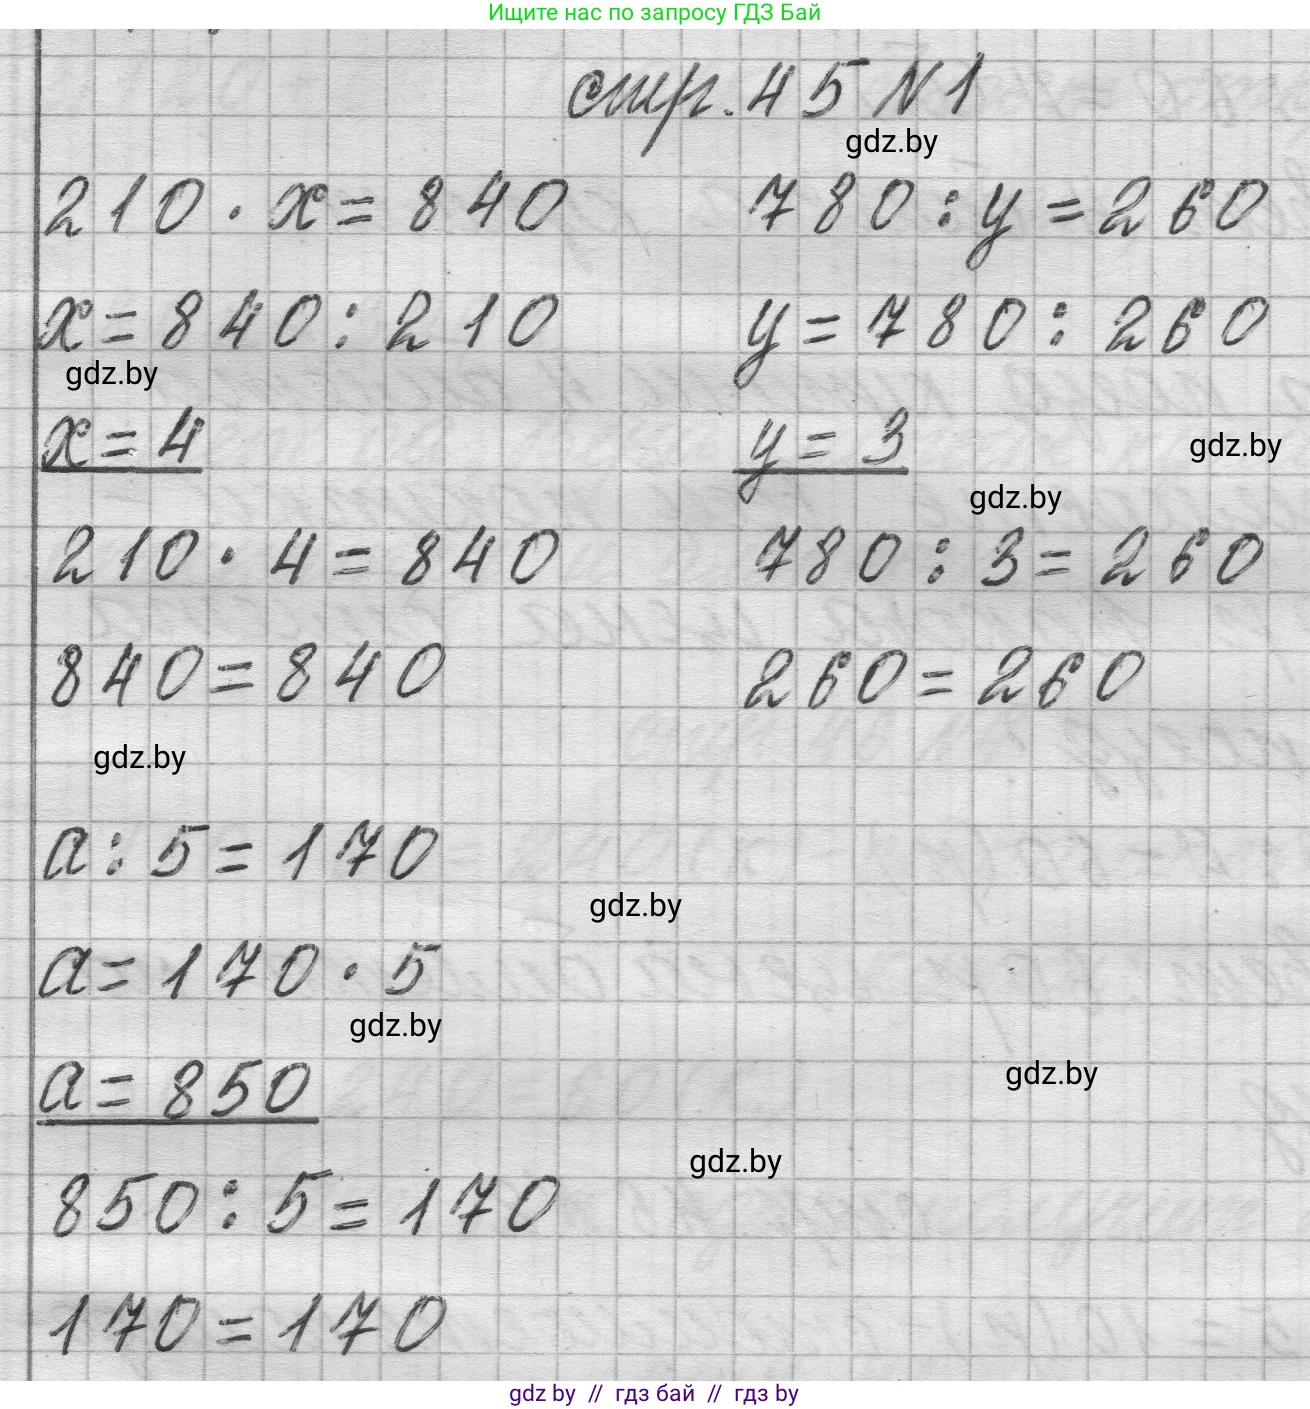 Ищите нас по запросу ГДЗ Бай
стр. 45 №1
gdz.by
210 · x = 840
780 : y = 260
x = 840 : 210
y = 780 : 260
gdz.by
x = 4
y = 3
gdz.by
gdz.by
210 · 4 = 840
780 : 3 = 260
840 = 840
260 = 260
gdz.by
a : 5 = 170
gdz.by
a = 170 · 5
gdz.by
a = 850
gdz.by
gdz.by
850 : 5 = 170
170 = 170
gdz by // гдз бай // гдз by